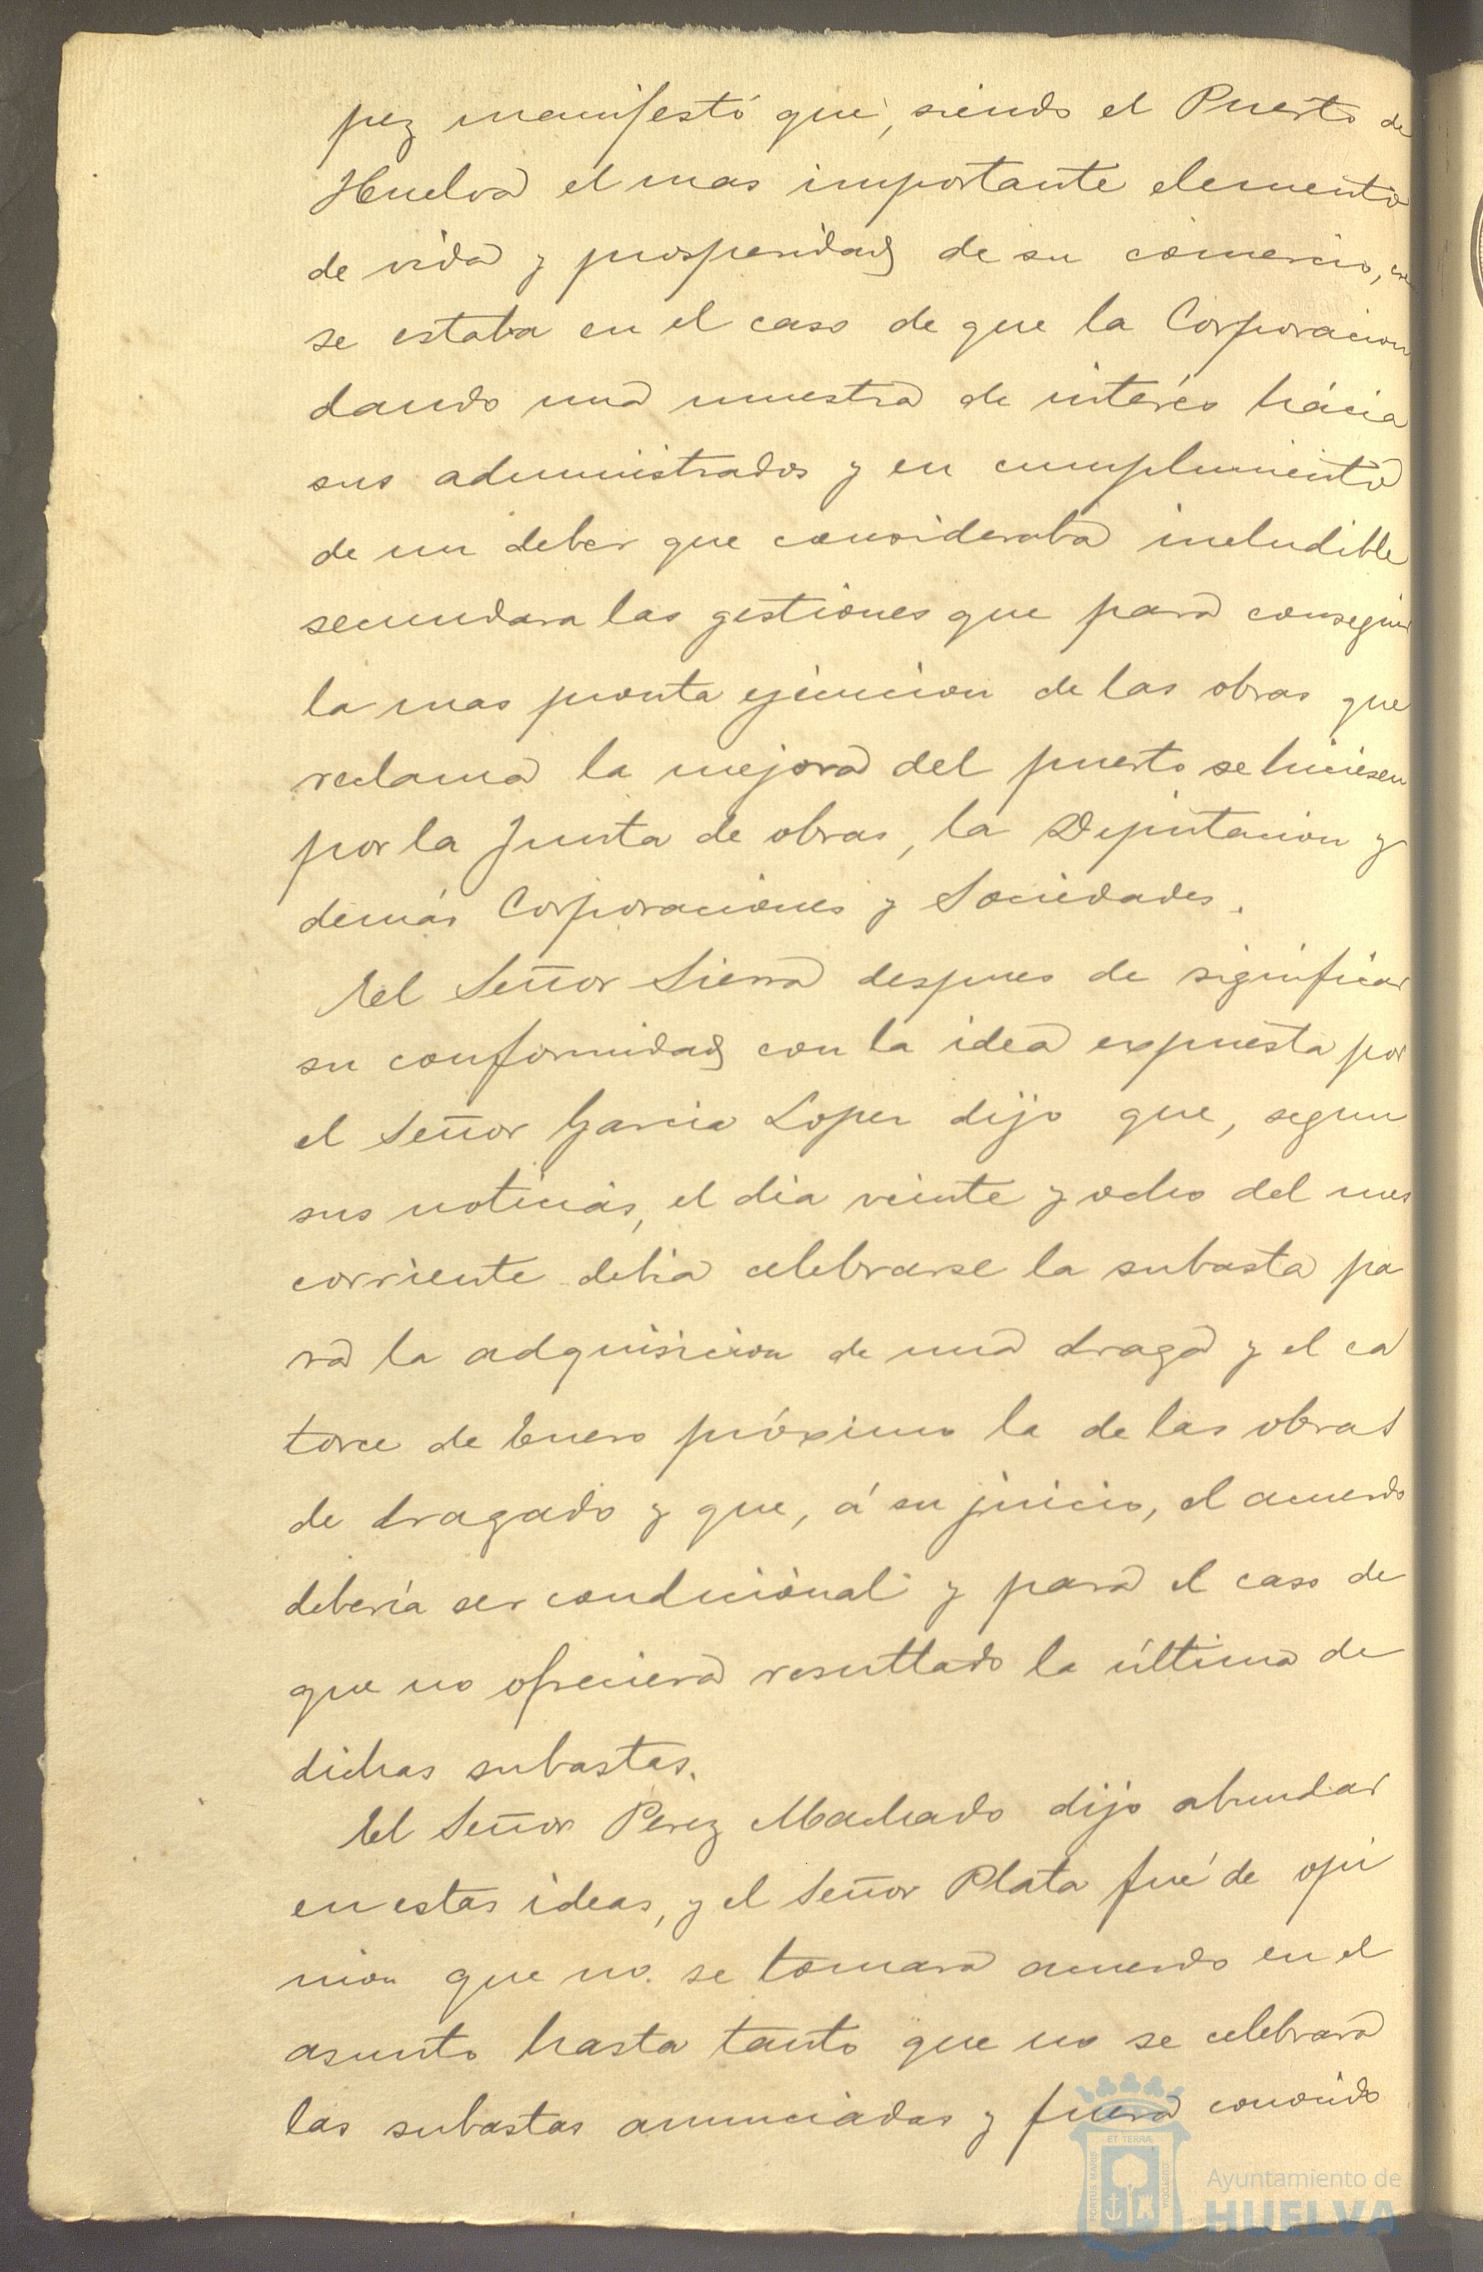 pez manifestó que, siendo el Puerto de
Huelva el mas importante elemento
de vida y prosperidad de su comercio,
se estaba en el caso de que la Corporacion
dando una muestra de interés hácia
sus administrados y en cumplimiento
de un deber que consideraba ineludible
secundara las gestiones que para conseguir
la mas pronta ejecucion de las obras que
reclama la mejora del puerto se hiciesen
por la Junta de obras, la Diputacion y
demás Corporaciones y Sociedades.
El Señor Sierra despues de significar
su conformidad con la idea expuesta por
el Señor Garcia Lopez dijo que, segun
sus noticias, el dia veinte y ocho del mes
corriente debia celebrarse la subasta pa
ra la adquisicion de una draga y el ca
torce de Enero próximo la de las obras
de dragado y que, á su juicio, el acuerdo
debería ser condicional y para el caso de
que no ofreciera resultado la última de
dichas subastas.
El Señor Perez Machado dijo abundar
en estas ideas, y el Señor Plata fué de opi
nion que no se tomara acuerdo en el
asunto hasta tanto que no se celebrara
las subastas anunciadas y fuera conocido
PORTUS MARIS
ET TERRÆ
CUSTODIA
Ayuntamiento de
HUELVA